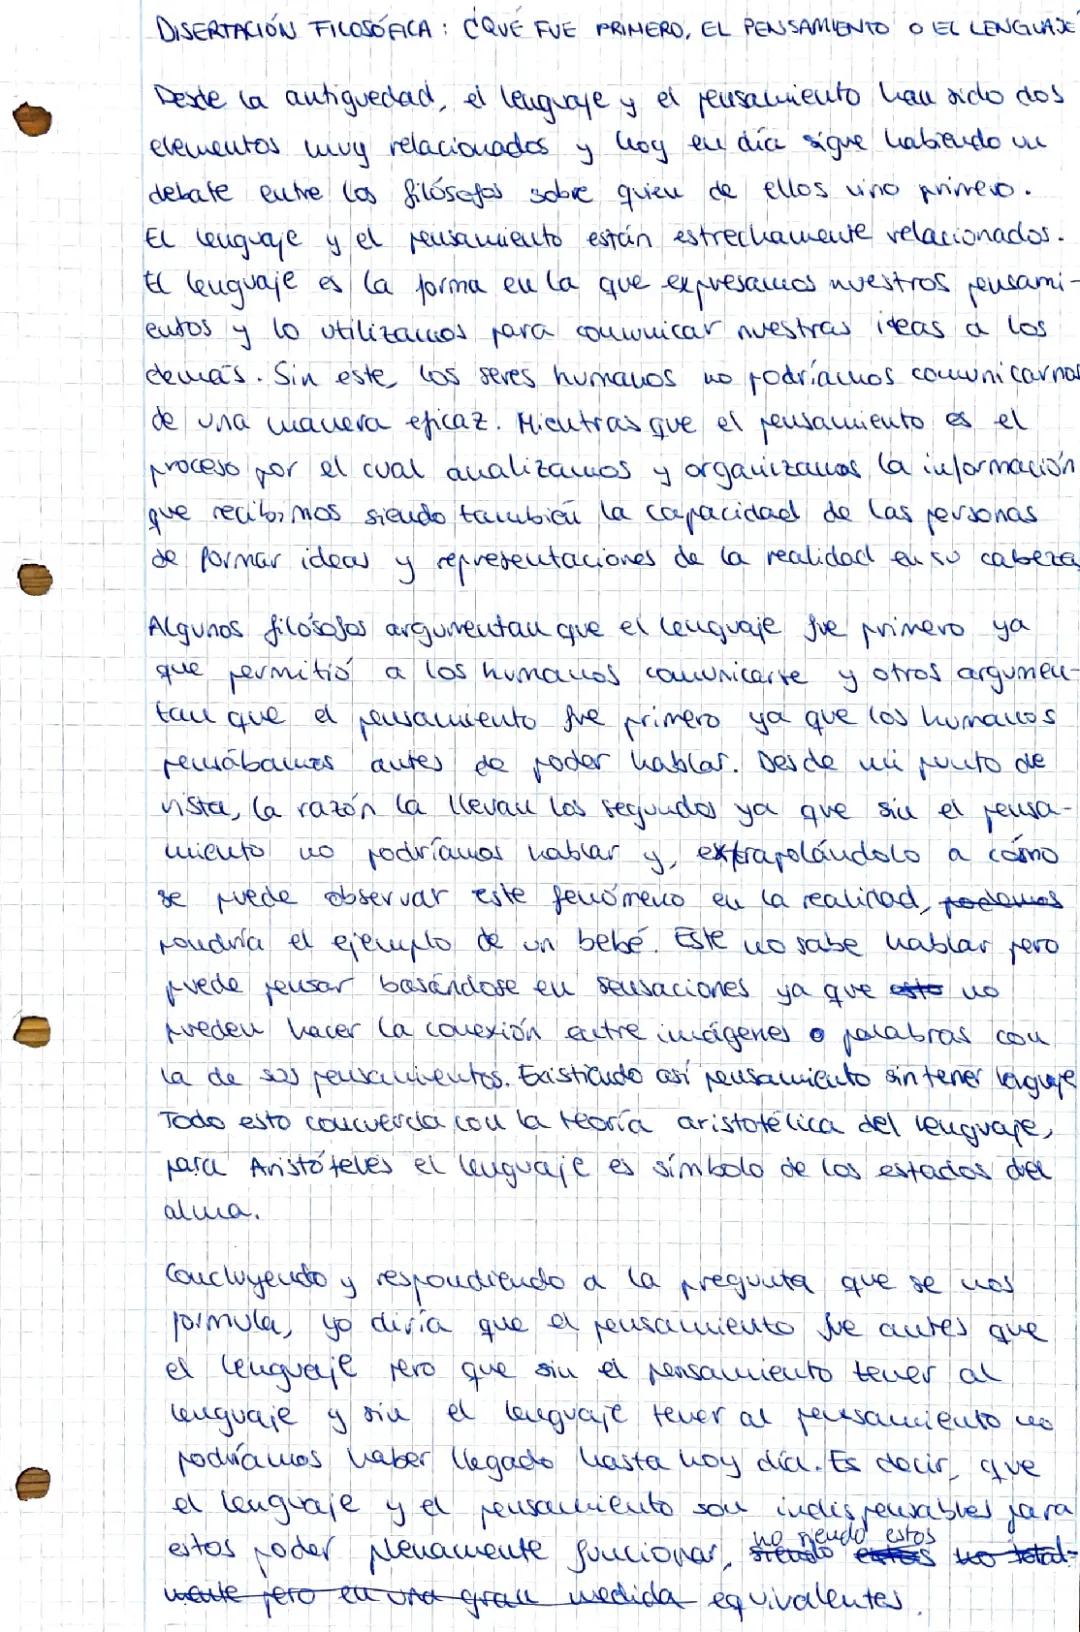 DISERTACIÓN FILOSÓFICA: ¿QUÉ FUE PRIMERO, EL PENSAMIENTO O EL LENGUAJE
Desde la antiguedad, el lenguaje y el pensamiento han sido dos
elementos muy relacionados y hoy en día sigue habiendo un
debate entre los filósofos sobre quien de ellos vino primero.
El lenguaje y el pensamiento están estrechamente relacionados.
El lenguaje es la forma en la que expresamos nuestros pensami-
entos y lo utilizamos para comunicar nuestras ideas a los
demás. Sin este, los seres humanos no podríamos comunicarnos
de una manera eficaz. Mientras que el pensamiento es el
proceso por el cual analizamos y organizamos la información
que recibimos siendo también la capacidad de las personas
de formar ideas y representaciones de la realidad en su cabeza
Algunos filósofos argumentan que el lenguaje fue primero ya
que permitió a los humanos comunicarse y otros argumen-
tan que el pensamiento fue primero ya que los humanos
pensábamos antes de poder hablar. Desde mi punto de
vista, la razón la llevan los segundos ya que sin el pensa-
miento no podríamos hablar y, extrapolándolo a cómo
se puede observar este fenómeno en la realidad, podemos
pondría el ejemplo de un bebé. Este no sabe hablar pero
puede pensar basándose en sensaciones ya que esto no
pueden hacer la conexión entre imágenes o palabras con
la de sus pensamientos. Existiendo así pensamiento sin tener lenguaje
Todo esto concuerda con la teoría aristotélica del lenguaje,
para Aristóteles el lenguaje es símbolo de los estados del
alma.
Concluyendo y respondiendo a la pregunta que se nos
formula, yo diría que el pensamiento fue antes que
el lenguaje pero que sin el pensamiento tener al
lenguaje y sin el lenguaje tener al pensamiento no
podríamos haber llegado hasta hoy día. Es decir, que
el lenguaje y el pensamiento son indispensables para
estos poder plenamente funcionar, no siendo estos
siendo estos no total-
mente pero en una gran medida equivalentes.